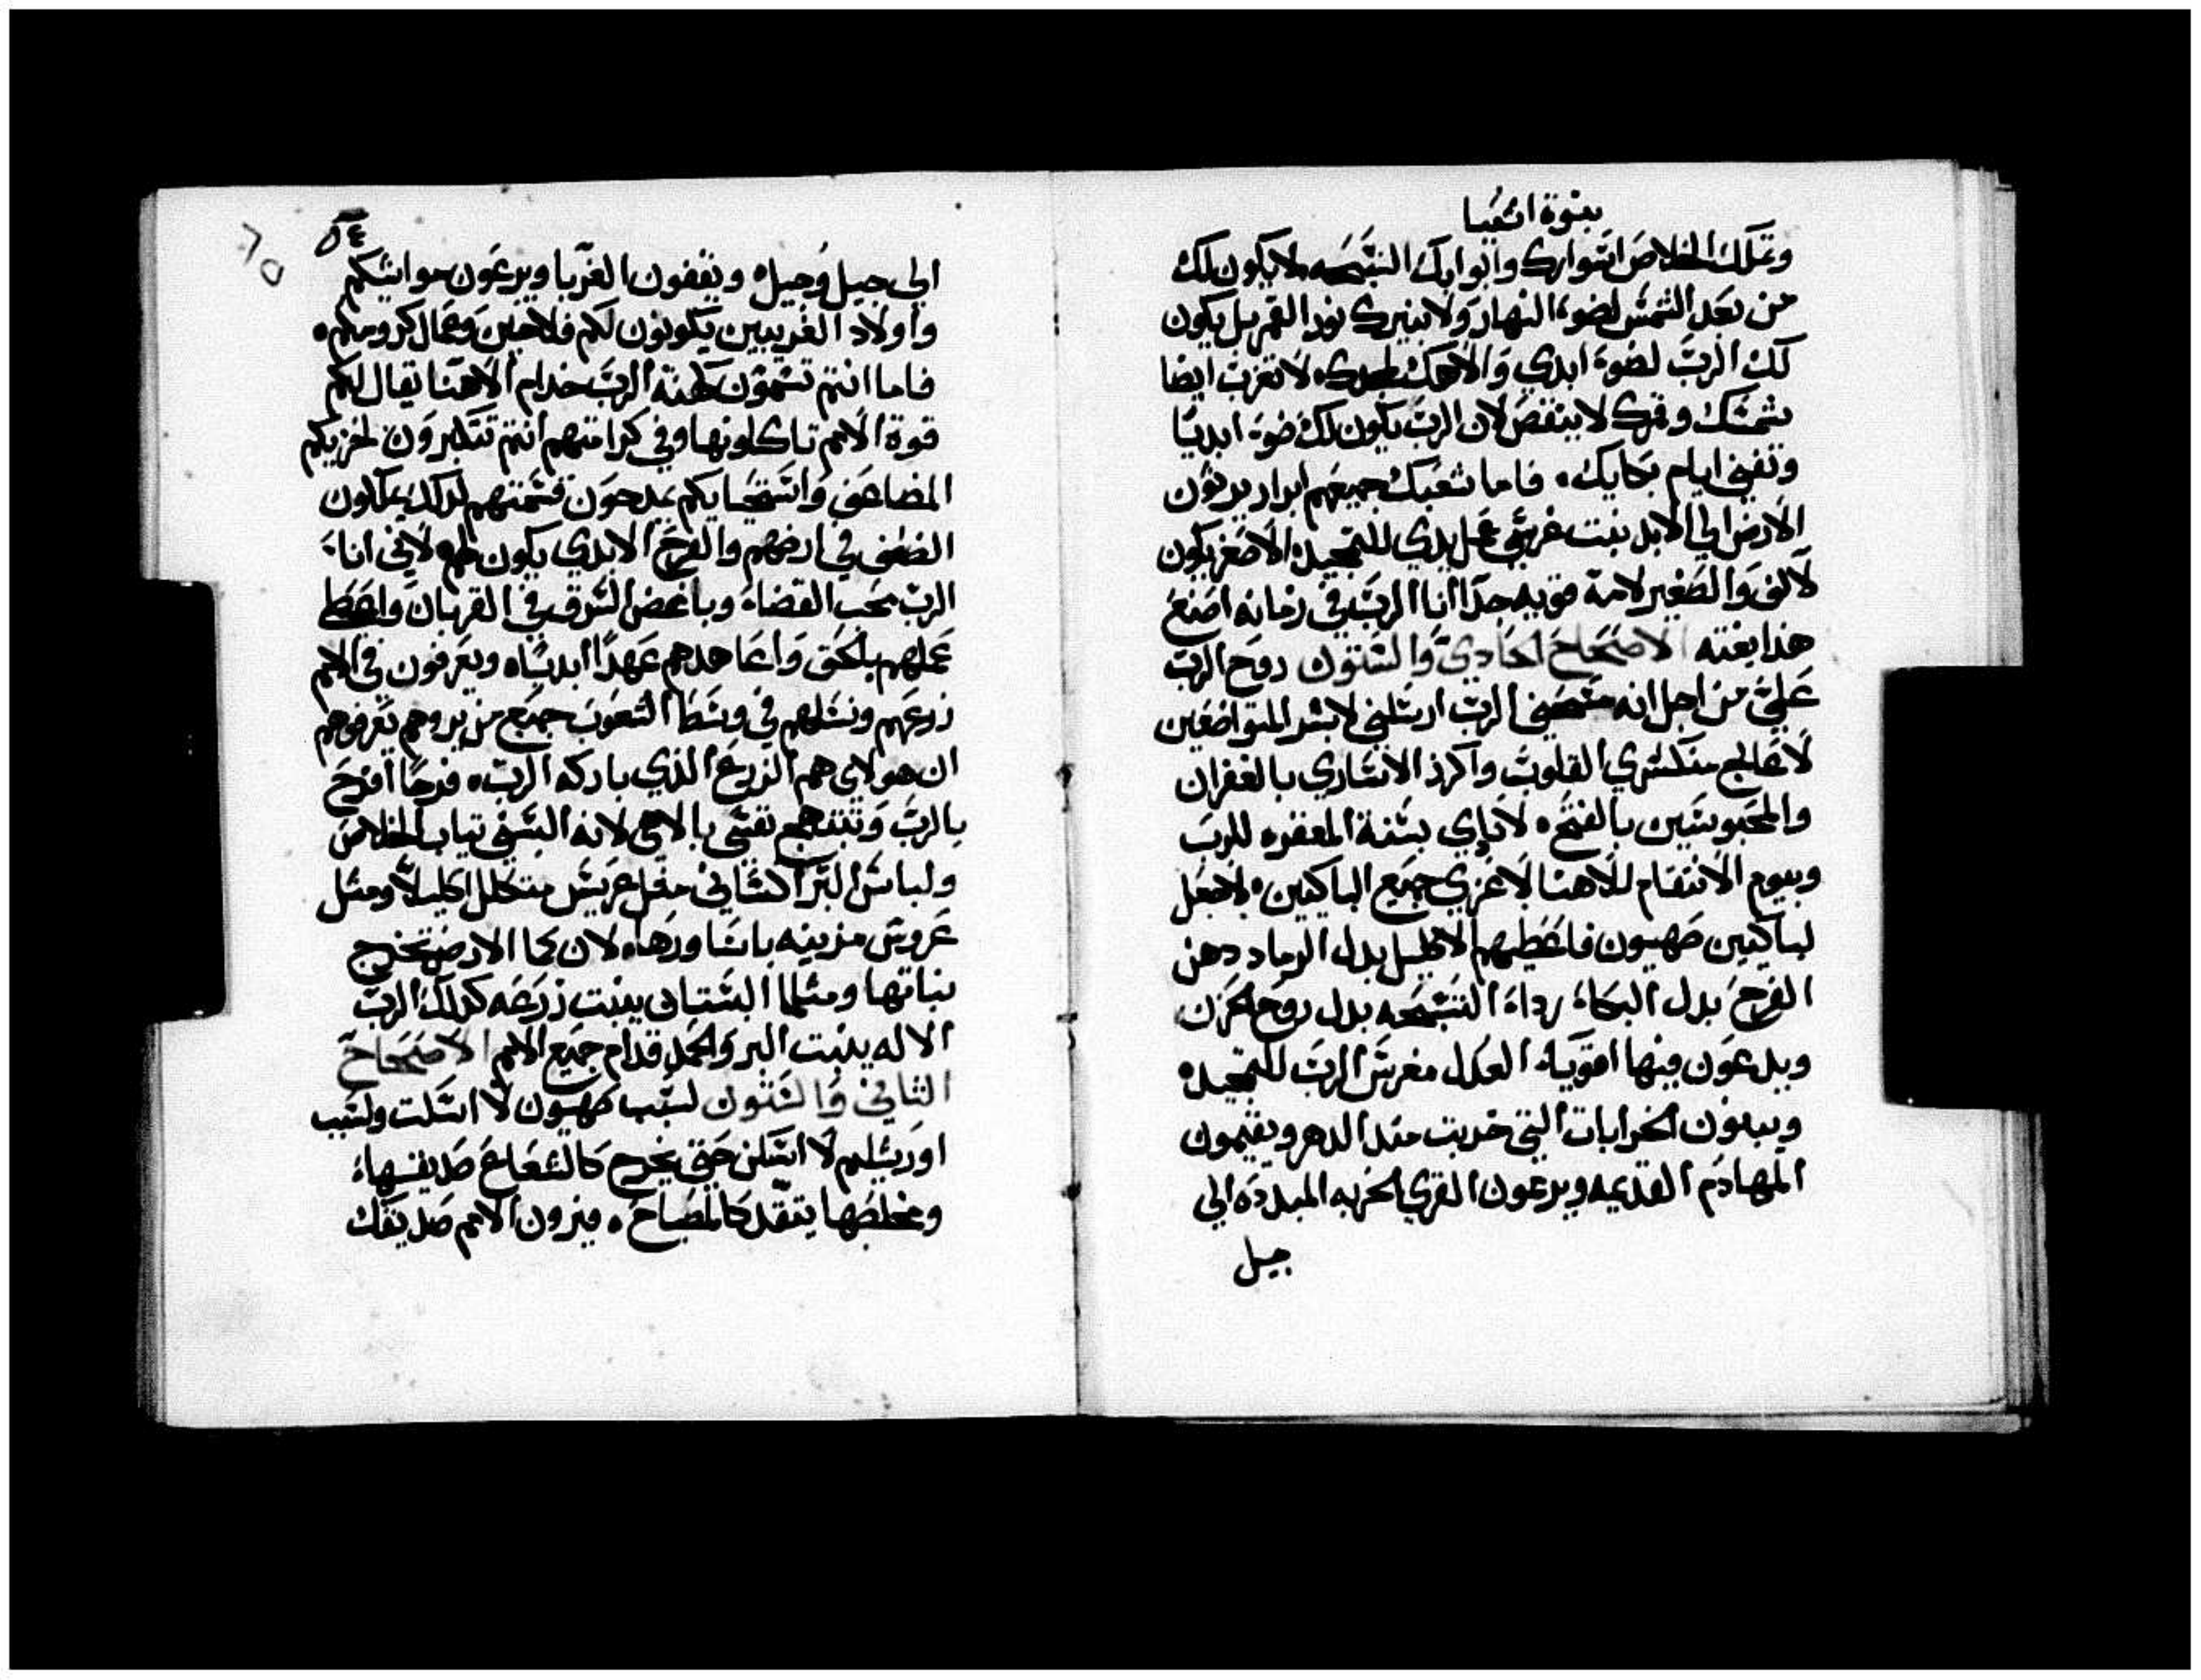 بنوة اشعيا
وتملك الخلاص اسوارك وابوابك التسبحه لا يكون لك
من بعد الشمس لضوء النهار ولا ينيرك نور القمر بل يكون
لك الرب لضوء ابدي والاهك لمجدك لا تغرب ايضا
شمسك وقمرك لا ينقص لان الرب يكون لك ضوء ابديا
وتفني ايام بكايك. فاما شعبك جميعهم ابرار يرثون
الارض الي الابد نبت غرسي عمل يدي للتمجيد الاصغر يكون
لالف والصغير لامة قويه جدا انا الرب في زمانه اصنع
هذا بغته الاصحاح الحادي والستون روح الرب
علي من اجل انه مسحني الرب ارسلني لابشر المتواضعين
لاعالج منكسري القلوب واكرز الاساري بالغفران
والمحبوسين بالفتح. لانادي بسنة المغفره للرب
وبيوم الانتقام للاهنا لاعزي جميع الباكيين. لاجعل
لباكيين صهيون فاعطيهم الاكليل بدل الرماد دهن
الفرح بدل البكاء رداء التسبحه بدل روح الحزن
ويدعون فيها اقوياء العدل مغرس الرب للتمجيد.
ويبنون الخرابات التي خربت منذ الدهر ويقيمون
المهادم القديمه ويدعون القري الخربه المبدده الي
جيل
٥٤
الي جيل وجيل. ويقفون الغربا ويرعون مواشيكم
واولاد الغريبين يكونون لكم فلاحين وعمال كرومكم.
فاما انتم تسمون كهنة الرب خدام الاهنا يقال لكم
قوة الامم تاكلونها وفي كرامتهم انتم تتكبرون لخزيكم
المضاعف واستحيايكم يمدحون قسمتهم لذلك يملكون
الضعف في ارضهم والفرح الابدي يكون لهم لاني انا
الرب محب القضاء وباغض السرق في القربان واعطي
عملهم بالحق واعاهدهم عهدا ابديا. ويعرفون في الامم
زرعهم ونسلهم في وسط الشعوب جميع من يروهم يعرفوهم
ان هولاي هم الزرع الذي باركه الرب. فرحا افرح
بالرب وتبتهج نفسي بالاهي لانه البسني تياب الخلاص
ولباس البر اكساني مثل عريس متكلل اكليلا ومثل
عروس مزينه باساورها. لان كما الارض تخرج
نباتها ومثلما البستان ينبت زرعه كذلك الرب
الاله ينبت البر والحمد قدام جميع الامم الاصحاح
الثاني والستون لسبب صهيون لا اسكت ولسبب
اورشليم لا اسكن حتي يخرج كالشعاع صديقها
ومخلصها يتقد كالمصباح. فيرون الامم صديقك